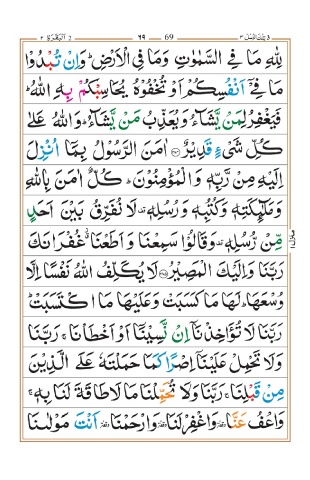 البقرة ٢ ٦٩ 69 تلك الرسل ٣
لِلّٰهِ مَا فِى السَّمٰوٰتِ وَمَا فِى الْاَرْضِ ؕ وَاِنْ تُبْدُوْا
مَا فِىْۤ اَنْفُسِكُمْ اَوْ تُخْفُوْهُ يُحَاسِبْكُمْ بِهِ اللّٰهُ ؕ
فَيَغْفِرُ لِمَنْ يَّشَآءُ وَيُعَذِّبُ مَنْ يَّشَآءُ ؕ وَاللّٰهُ عَلٰى
كُلِّ شَىْءٍ قَدِيْرٌ اٰمَنَ الرَّسُوْلُ بِمَاۤ اُنْزِلَ
اِلَيْهِ مِنْ رَّبِّهٖ وَالْمُؤْمِنُوْنَ ؕ كُلٌّ اٰمَنَ بِاللّٰهِ
وَمَلٰٓئِكَتِهٖ وَكُتُبِهٖ وَرُسُلِهٖ لَا نُفَرِّقُ بَيْنَ اَحَدٍ
مِّنْ رُّسُلِهٖ وَقَالُوْا سَمِعْنَا وَاَطَعْنَا غُفْرَانَكَ
رَبَّنَا وَاِلَيْكَ الْمَصِيْرُ لَا يُكَلِّفُ اللّٰهُ نَفْسًا اِلَّا
وُسْعَهَا ؕ لَهَا مَا كَسَبَتْ وَعَلَيْهَا مَا اكْتَسَبَتْ ؕ
رَبَّنَا لَا تُؤَاخِذْنَاۤ اِنْ نَّسِيْنَاۤ اَوْ اَخْطَاْنَا ۚ رَبَّنَا
وَلَا تَحْمِلْ عَلَيْنَاۤ اِصْرًا كَمَا حَمَلْتَهٗ عَلَى الَّذِيْنَ
مِنْ قَبْلِنَا ۚ رَبَّنَا وَلَا تُحَمِّلْنَا مَا لَا طَاقَةَ لَنَا بِهٖ ۚ
وَاعْفُ عَنَّا وَاغْفِرْ لَنَا وَارْحَمْنَا اَنْتَ مَوْلٰىنَا